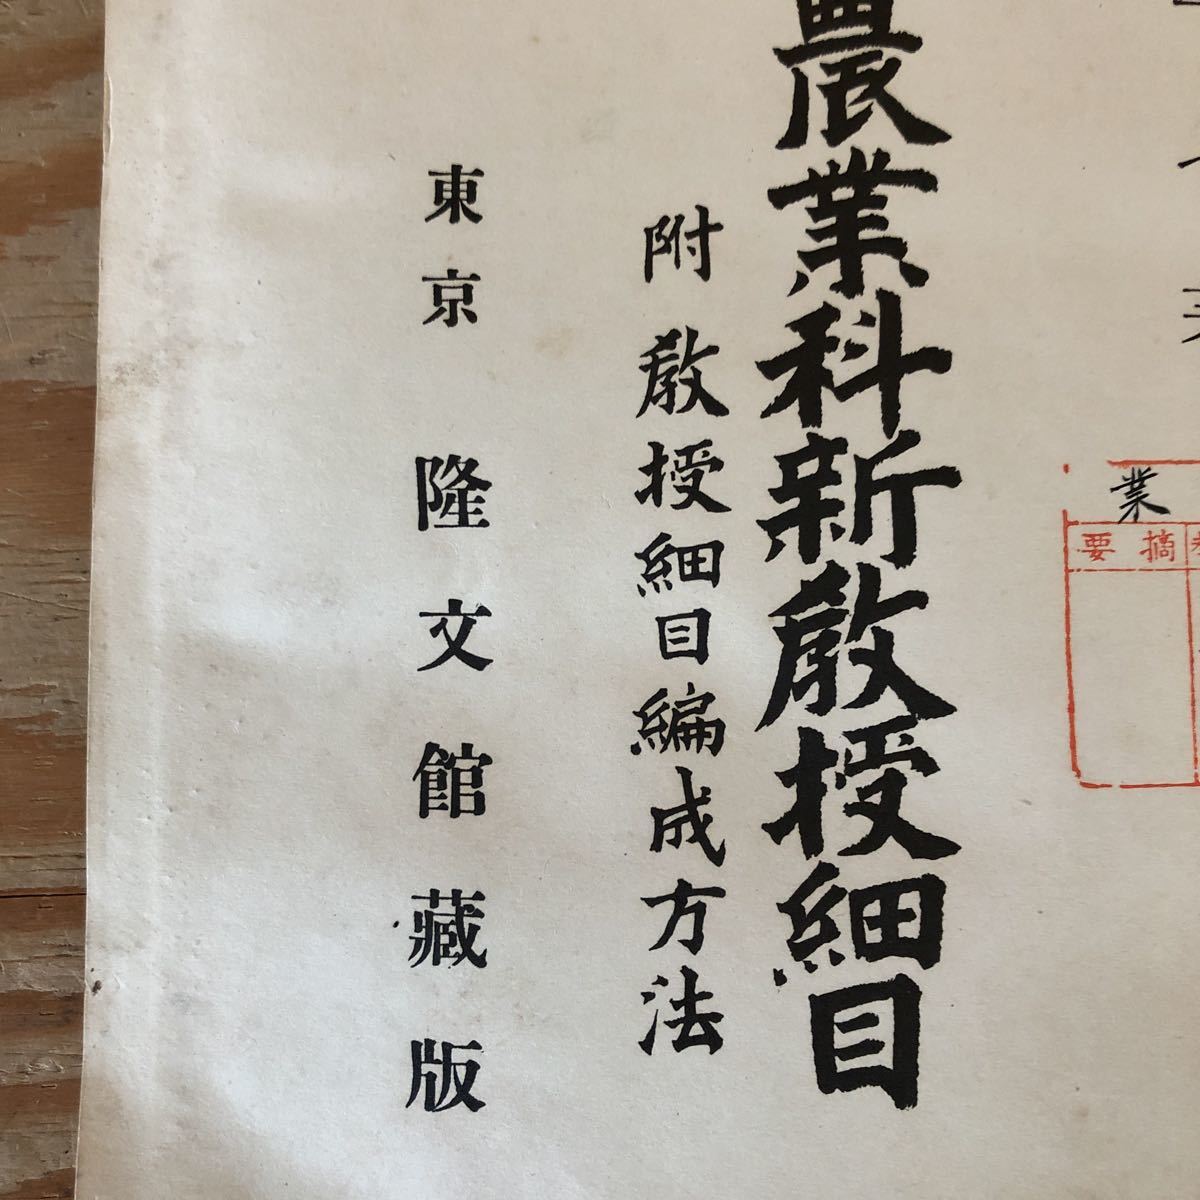 業
摘要
農業科新敎授細目
附 敎授細目編成方法
東京 隆文館藏版